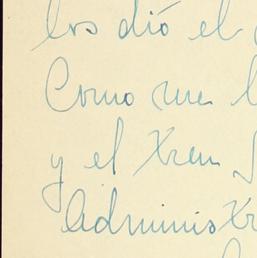 los dió el
Como me l
y el Xren
Adminis